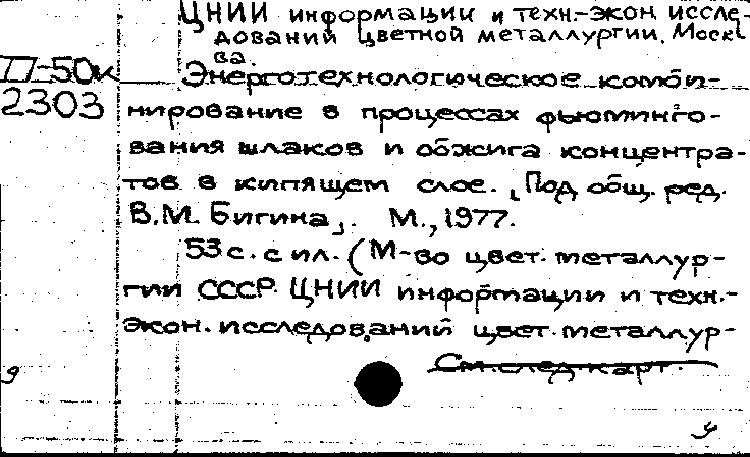 ЦНИИ информации и техн.-экон. иссле-
дований цветной металлургии. Моск-
ва.
П-50к
2303
Энерготехнологическое комби-
нирование в процессах фьюминго-
вания шлаков и обжига концентра-
тов в кипящем слое. [Под общ. ред.
В.М. Бигина]. М., 1977.
53 с. с ил. (М-во цвет. металлур-
гии СССР. ЦНИИ информации и техн.-
экон. исследований цвет. металлур-
См. след. карт.